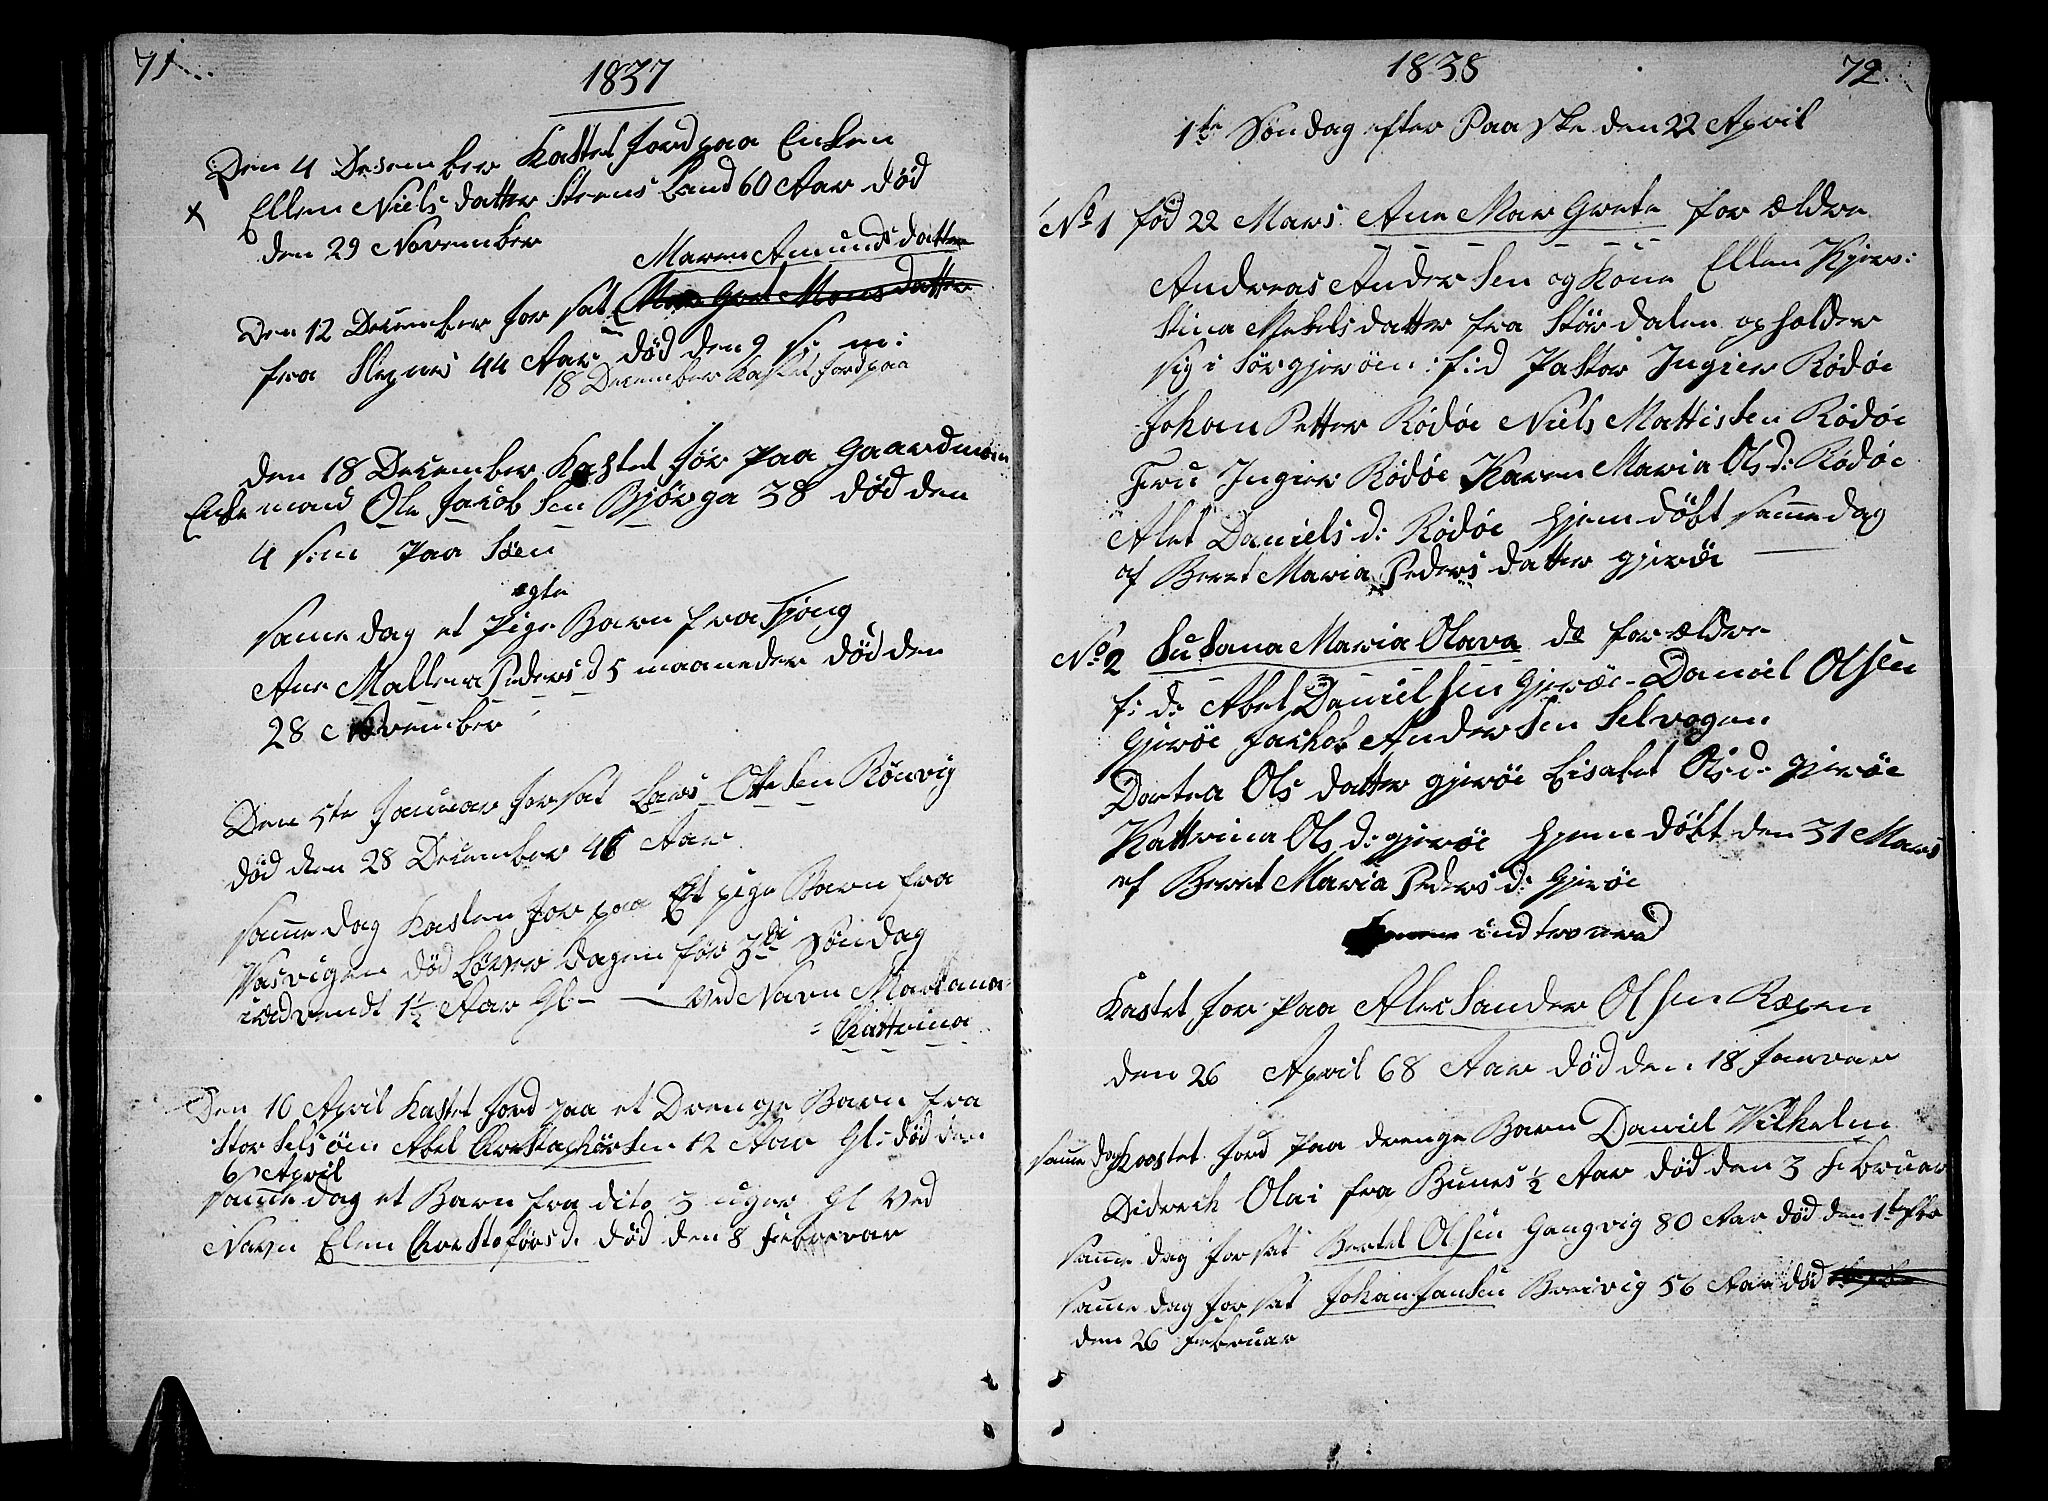 71
1837
Den 4 Desember Kastet Jord paa Enken
Ellen Niels datter Steens Land 60 Aar död
x
den 29 November
Maren Amunds datter
Den 12 December for sat Mons datter
fra Slegnes 44 Aar död den 9 s: m:
18 December Kastet Jord paa
den 18 December Kastet Jör paa Gaardmain
Enkemand Ole Jacob Sen Bjørga 38 död den
4 s:m paa Söen
egte
same dag et Pige Barn fra Tjong
Ane Mallena Peders d 5 maaneder död den
28 November
Den 5te Januar for sat Lars Otte Sen Rönvig
död den 28 December 46 Aar
samme dag Kasten Jor paa Et pige Barn fra
Vasvigen död Löver dagen för 3di Söndag
i advendt 1½ Aar Gl - ved Navn Martana
= Kattrina
Den 10 April Kastet Jord paa et Drenge Barn fra
Stor Selsöen Abel Chrestophörsen 12 Aar Gl: död den
6 April
samme dag et Barn fra dito 3 uger Gl ved
Navn Elen Chrestoförs d. död den 8 Februar
1838
72
1te Söndag efter Paa ske den 22 April
No 1 föd 22 Mars Ane Mar Grete for ældre
Andreas Ander Sen og Kone Ellen Kjers:
stina Mekels datter fra Stördalen opholder
sig i Sörgjeröen: f:d Pastor Ingier Rödöe
Johan Petter Rödöe Niels Mattissen Rödöe
Fru Ingier Rödöe Karen Maria Ols d: Rödöe
Alet Daniels d: Rödöe hjem döbt samme dag
af Beret Maria Peders datter gjeröe
No 2 Susana Maria Olava do forældre
f: d: Abel Daniel sen Gjeröe - Daniel Olsen
Gjeröe Jackob Ander Sen Selvogen
Dortea Ols datter gjeröe Lisabet Ols d: gjeröe
Kattrina Ols d: gjeröe hjem döbt den 31 Mars
af Beret Maria Peders d: Gjeröe
indtro nered
Kastet Jor paa Alec Sander Olsen Ræpen
den 26 April 68 Aar död den 18 Januar
samme dag Kastet Jord Paa drenge Barn Daniel Vilhelm
Diderik Olai fra Bunes ½ Aar död den 3 Februar
samme dag for sat Bertel Olsen Gangvig 80 Aar död den 1te
samme dag for sat Johan Jansen Breivig 56 Aar död
den 26 Februar